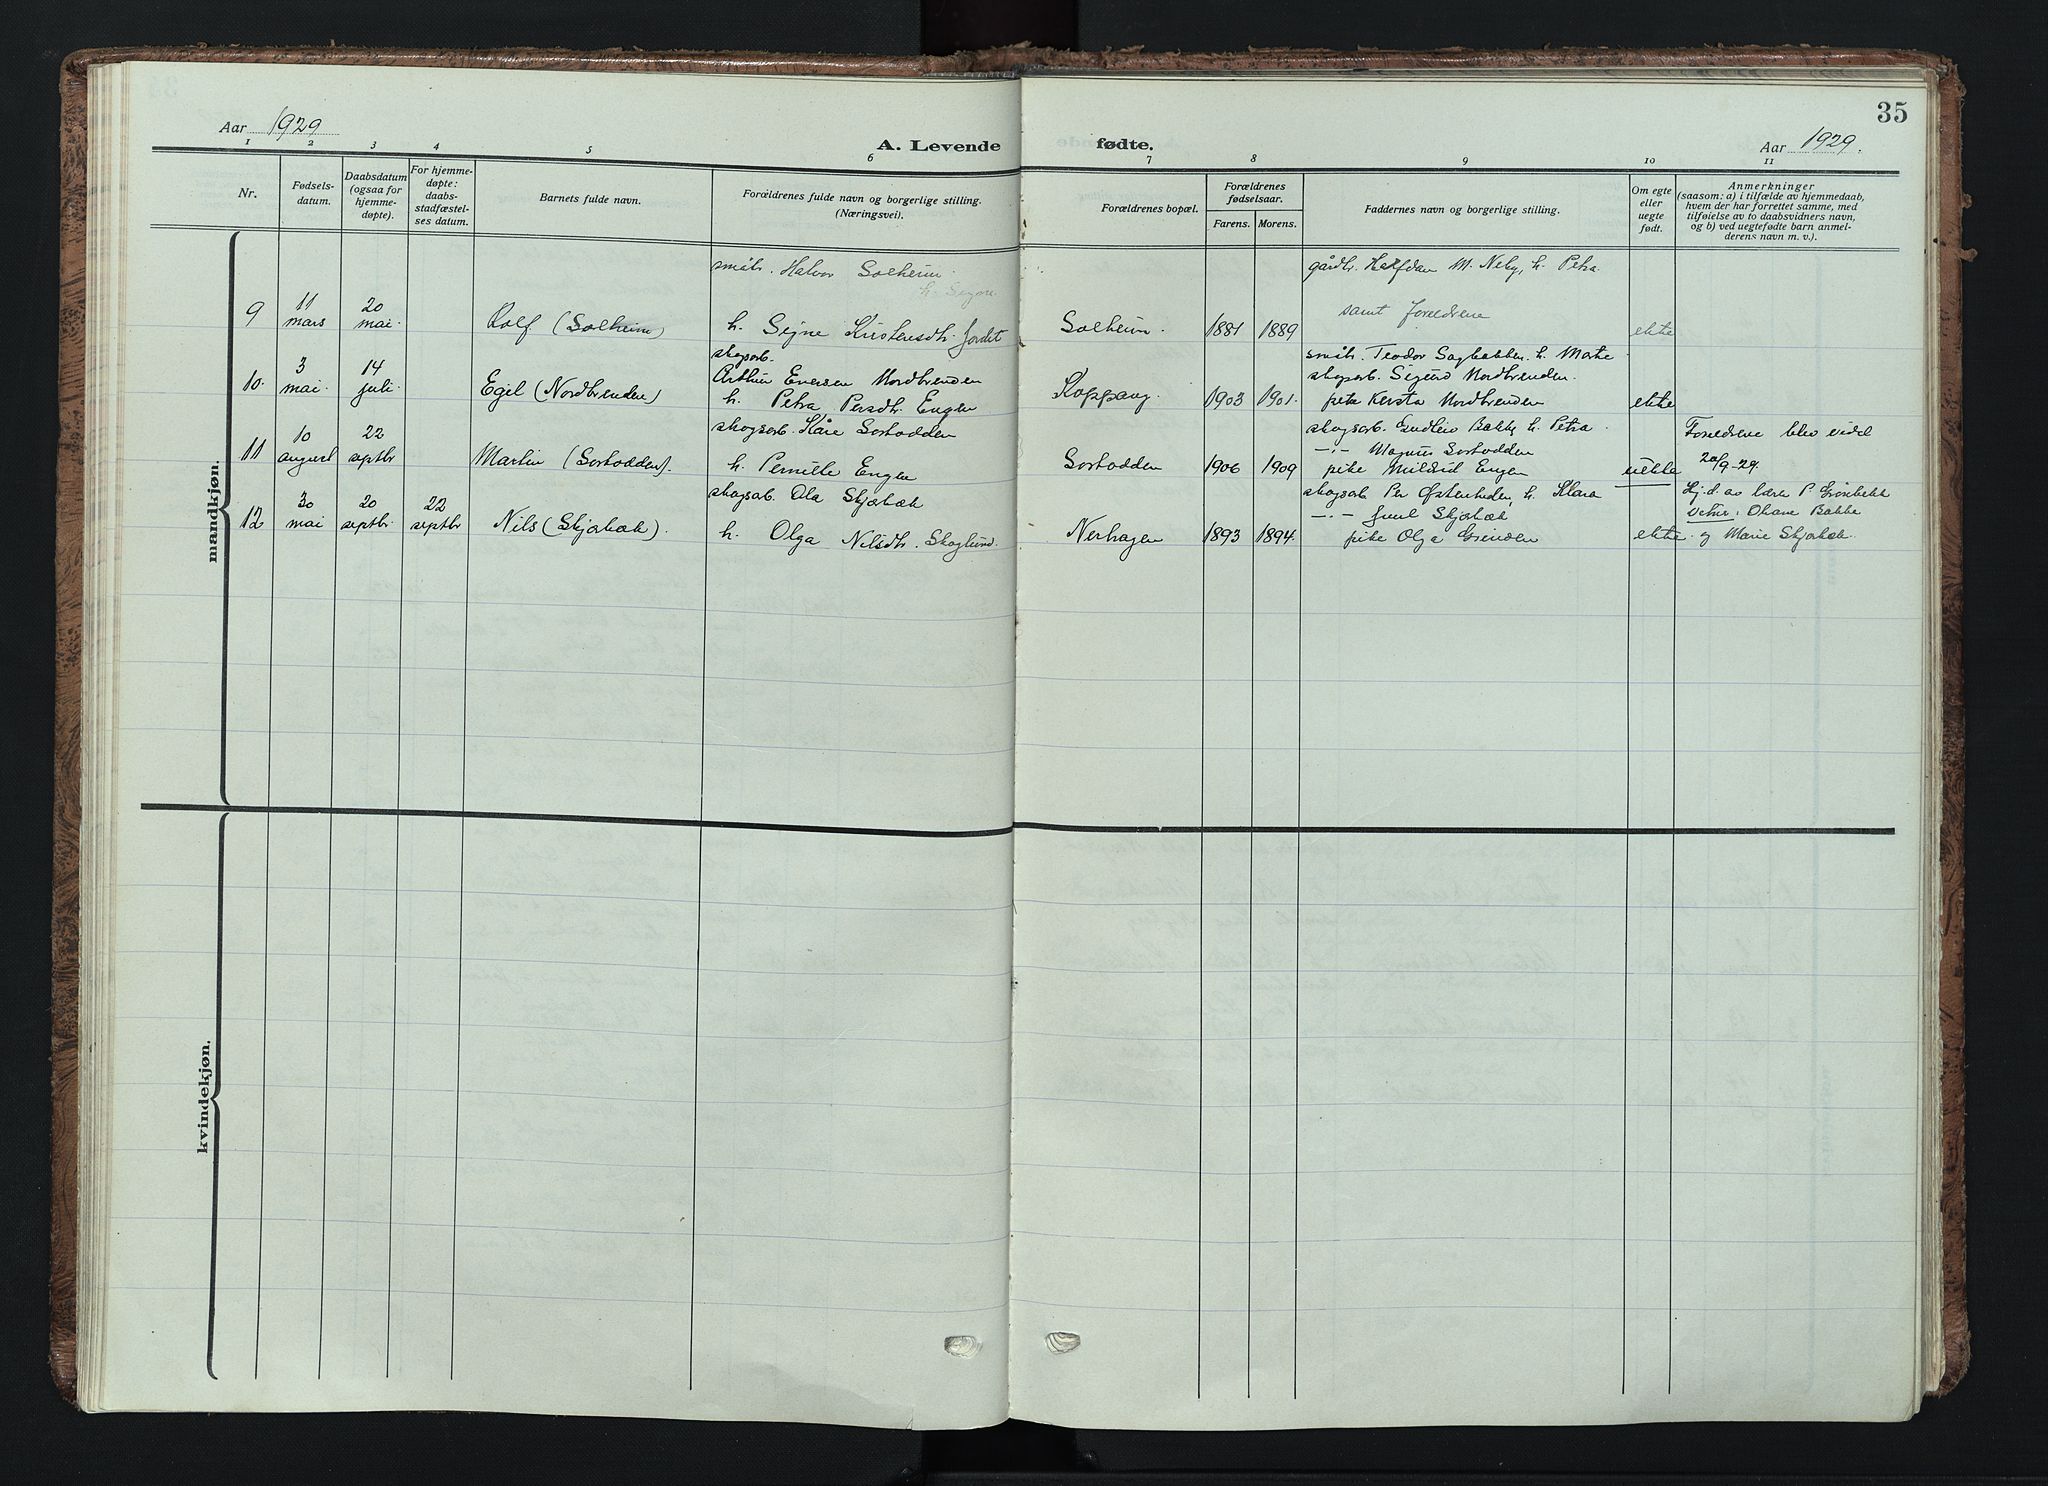 35
Aar 1929
A. Levende fødte.
Aar 1929.
1 2 3 4 5 6 7 8 9 10 11
Nr.
Fødsels-
datum.
Daabsdatum
(ogsaa for
hjemme-
døpte).
For hjemme-
døpte:
daabs-
stadfæstel-
ses datum.
Barnets fulde navn.
Forældrenes fulde navn og borgerlige stilling.
(Næringsvei).
Forældrenes bopæl.
Forældrenes
fødselsaar.
Farens. Morens.
Faddernes navn og borgerlige stilling.
Om egte
eller
uegte
født.
Anmerkninger
(saasom: a) i tilfælde av hjemmedaab,
hvem der har forrettet samme, med
tilføielse av to daabsvidners navn,
og b) ved uegtefødte barn anmel-
derens navn m. v.).
mandkjøn.
småbr. Halvor Solheim. gårdbr. Halfdan M. Neby, h. Petra.
h. Signe
11 20 samt foreldrene
9 mars mai. Rolf (Solheim) h. Signe Kristensdtr. Jordet Solheim. 1881 1889 ekte
skogsarb. småbr. Teodor Sagbakken, h. Marte
3 14 Arthur Eversen Nordbrenden skogsarb. Sigurd Nordbrenden.
10. mai. juli. Egil (Nordbrenden) h. Petra Persdtr. Engen Koppang. 1903 1901. pike Kersta Nordbrenden ekte
10 22 skogsarb. Kåre Sorknodden skogsarb. Gudleiv Bakke, h. Petra. Foreldrene blev viet
11 august septbr Martin (Sorknodden). h. Pernille Engen Sorknodden 1906 1909 -"- Magnus Sorknodden
pike Mildrid Engen uekte 20/9-29.
30 20 22 skogsarb. Ola Skjærbæk skogsarb Per Østenheden, h. Klara Hj.d. av lære P. Grønbekk
12 mai septbr. septbr Nils (Skjærbæk). h. Olga Nilsdtr. Skoglund. Nerhagen 1893 1894. -"- Juul Skjærbæk Vitner: Oliane Bakke
pike Olga Grinden ekte. og Marie Skjærbæk.
kvindekjøn.